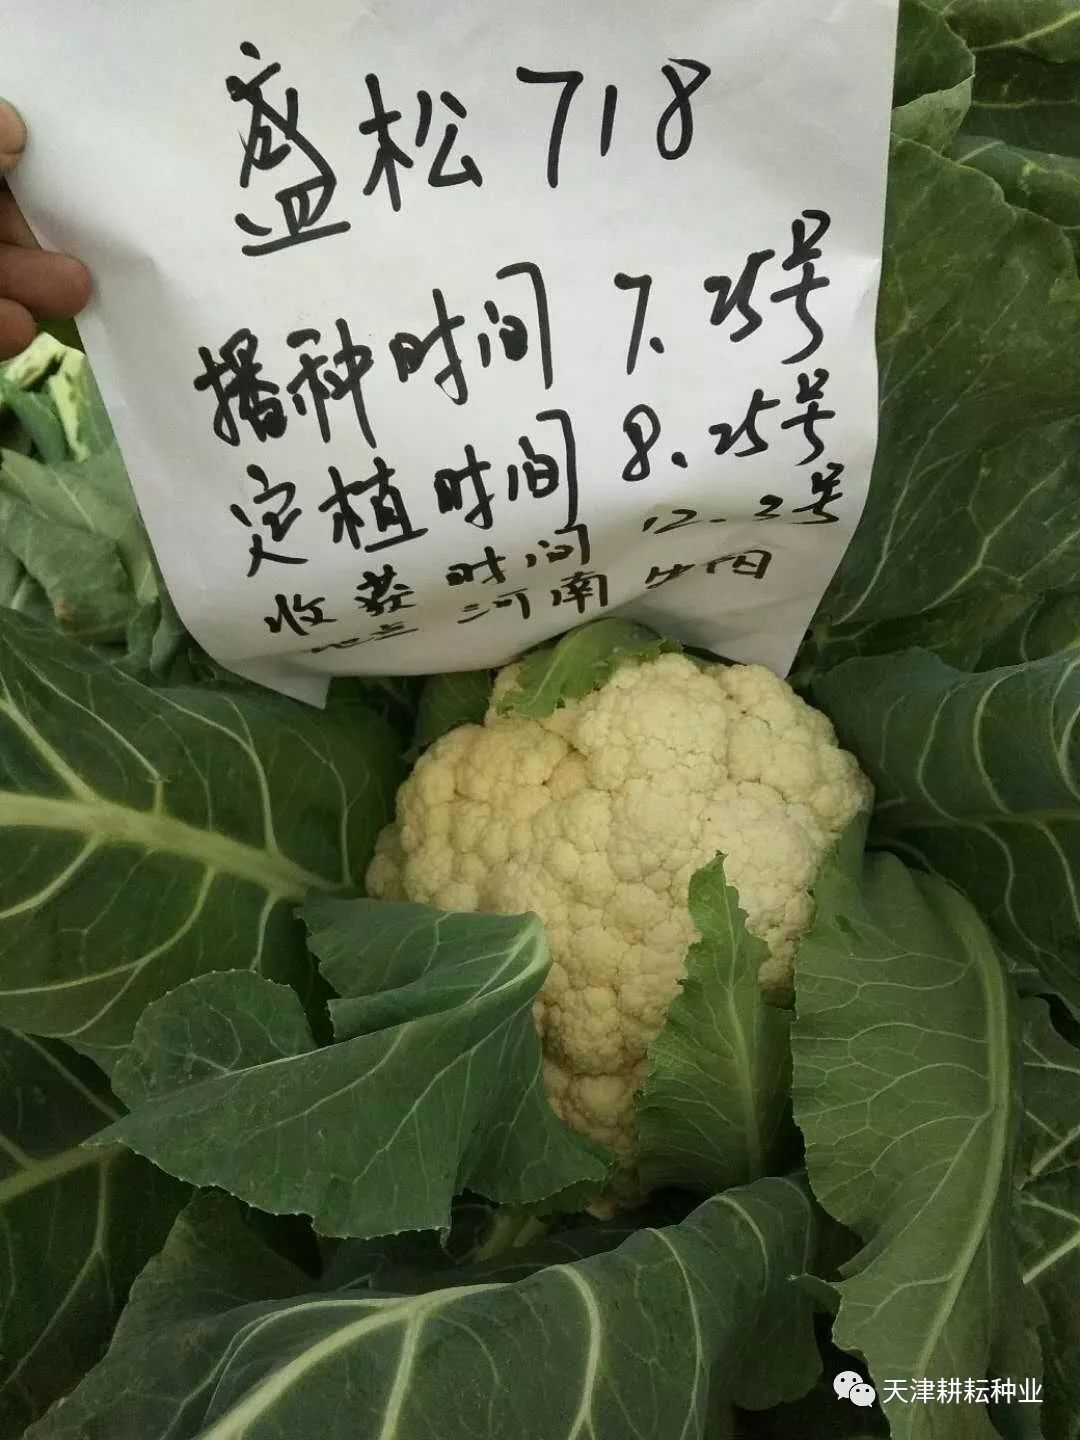 盛松718
播种时间 7.25号
定植时间 8.25号
收获时间 12.2号
地点 河南
天津耕耘种业